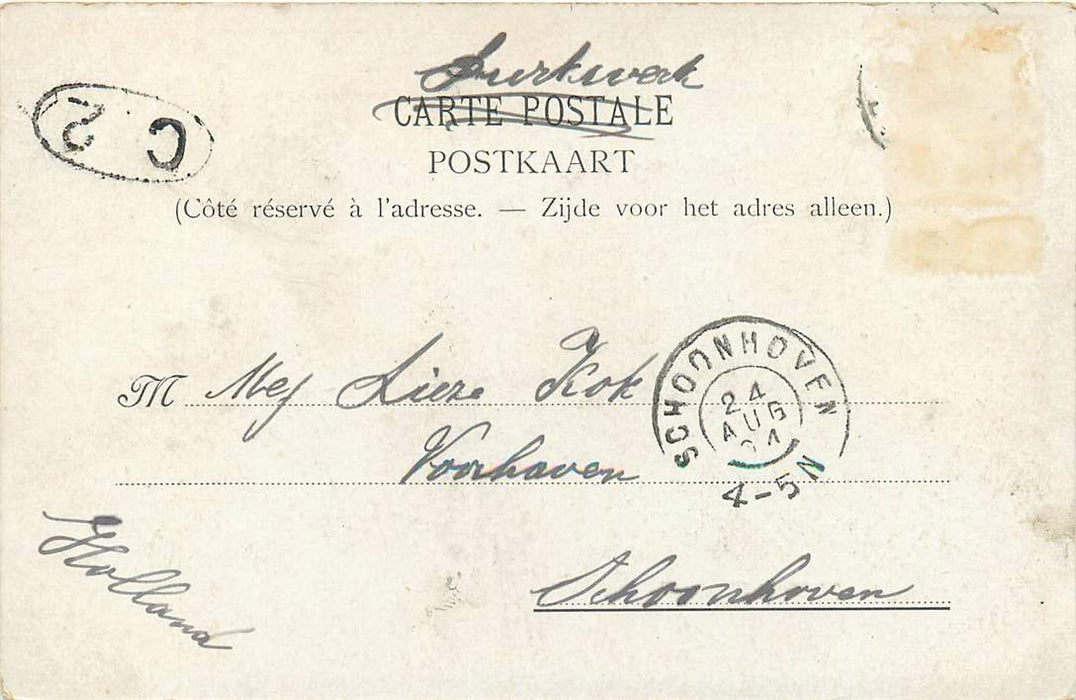 Drukwerk
CARTE POSTALE
POSTKAART
(Côté réservé à l'adresse. — Zijde voor het adres alleen.)
C 2
M Mej Kok
Voorhaven
Schoonhoven
Holland
SCHOONHOVEN
24
AUG
4-5N